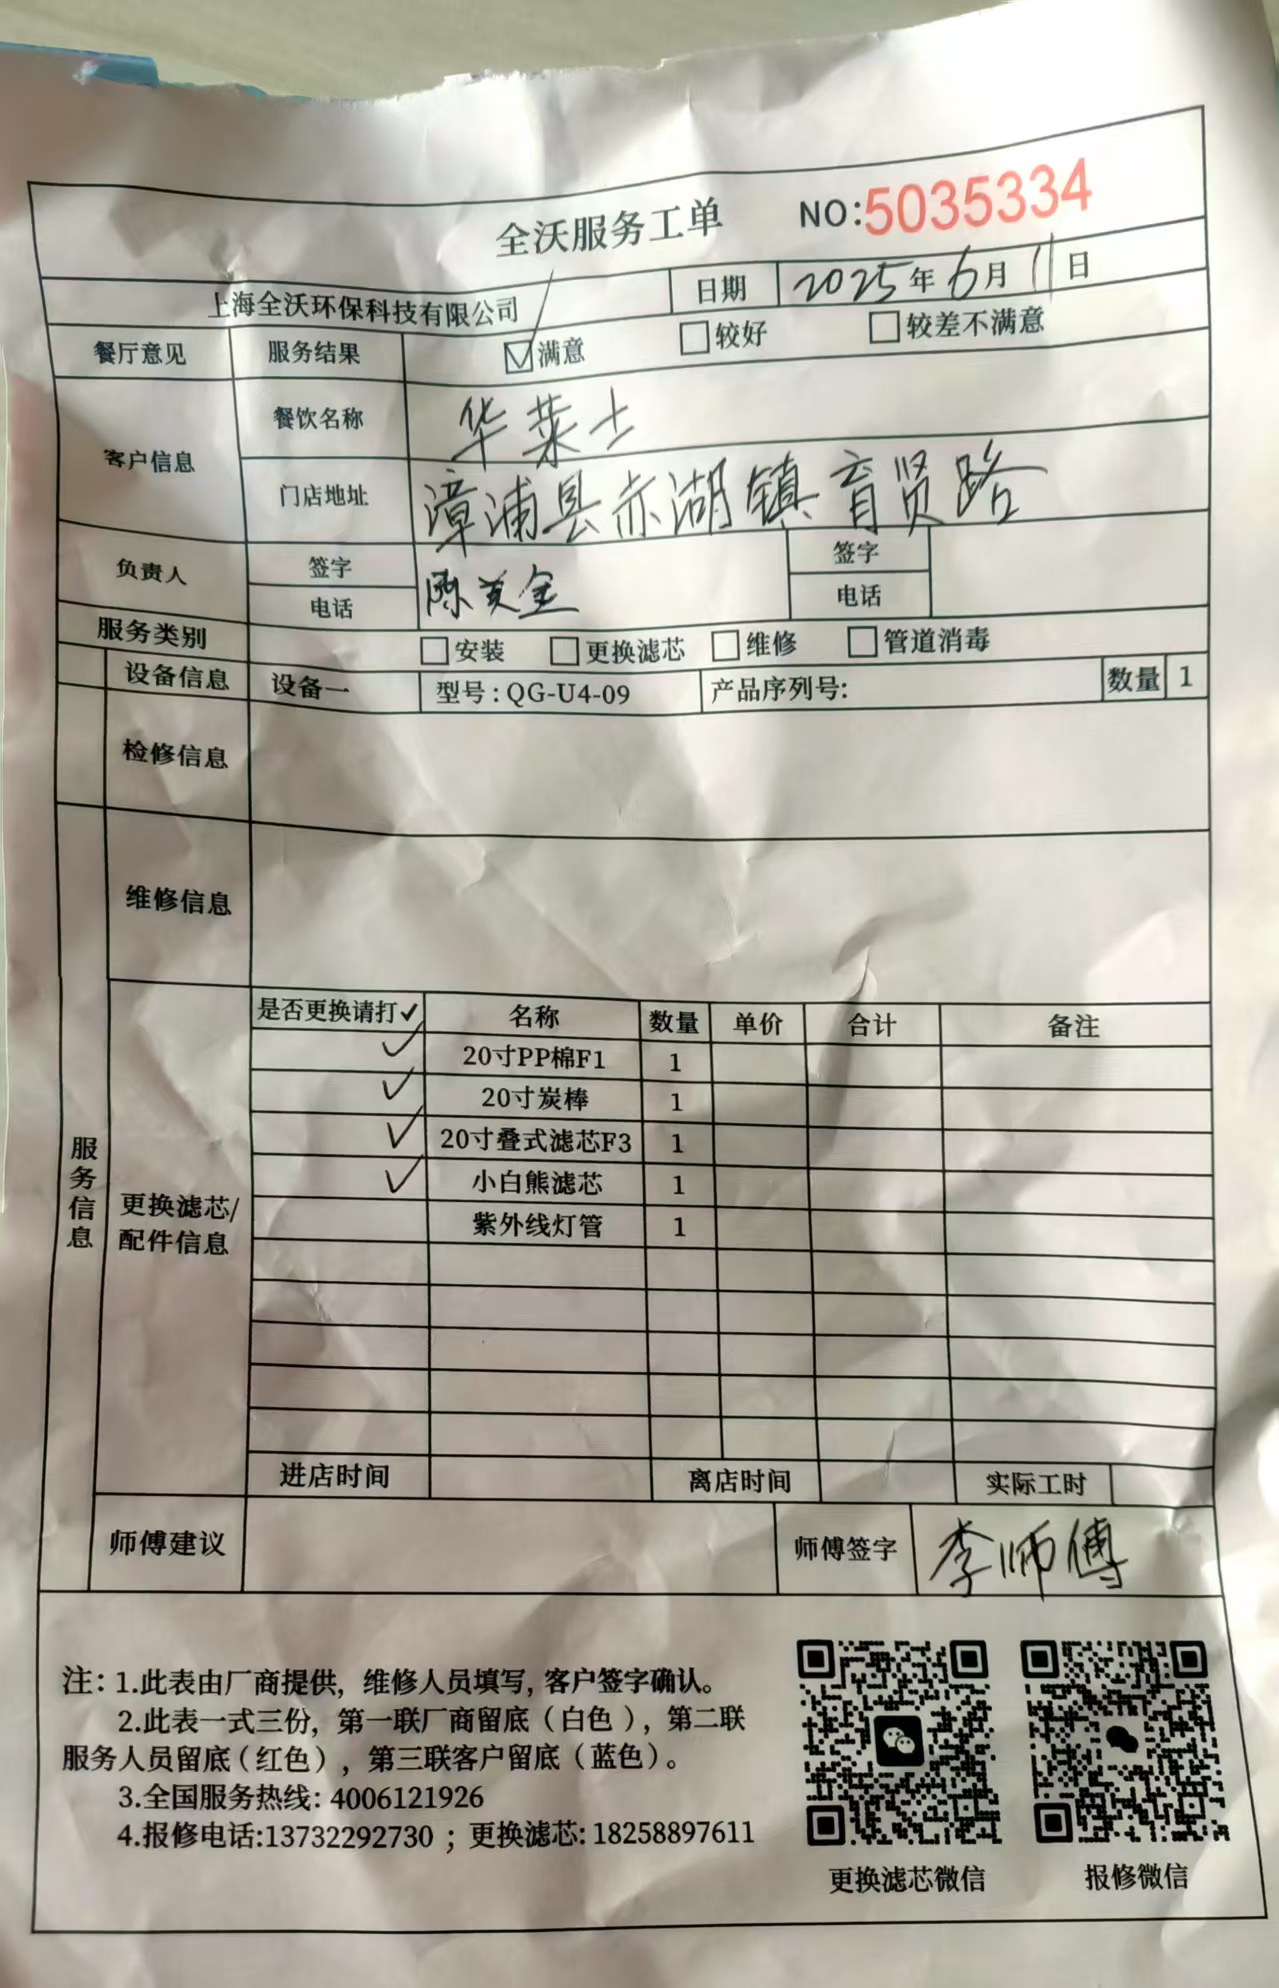 全沃服务工单 NO:5035334
上海全沃环保科技有限公司 日期 2025年6月11日
餐厅意见 服务结果 ☑满意 □较好 □较差不满意
客户信息 餐饮名称 华莱士
门店地址 漳浦县赤湖镇育贤路
负责人 签字 陈 签字
电话 电话
服务类别 □安装 □更换滤芯 □维修 □管道消毒
设备信息 设备一 型号:QG-U4-09 产品序列号: 数量 1
检修信息
维修信息
服务信息
更换滤芯/
配件信息
是否更换请打✓ 名称 数量 单价 合计 备注
✓ 20寸PP棉F1 1
✓ 20寸炭棒 1
✓ 20寸叠式滤芯F3 1
✓ 小白熊滤芯 1
紫外线灯管 1
进店时间 离店时间 实际工时
师傅建议 师傅签字 李师傅
注: 1.此表由厂商提供, 维修人员填写, 客户签字确认。
2.此表一式三份, 第一联厂商留底(白色), 第二联
服务人员留底(红色), 第三联客户留底(蓝色)。
3.全国服务热线: 4006121926
4.报修电话:13732292730 ; 更换滤芯: 18258897611
更换滤芯微信 报修微信